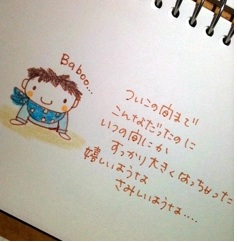 Baboo...
ついこの間まで
こんなだったのに
いつの間にか
すっかり大きくなっちゃった
嬉しいような
さみしいような....